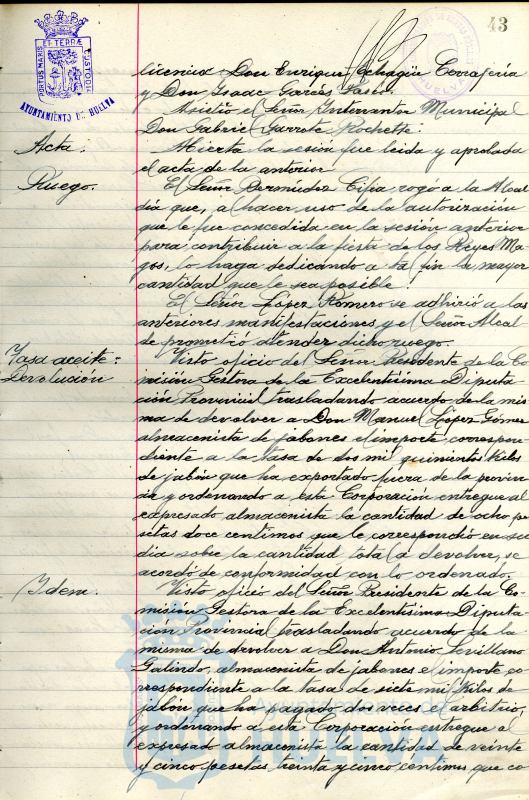 43
PORTUS MARIS ET TERRÆ CUSTODIA
AYUNTAMIENTO DE HUELVA
licencia Don Enrique Echagüe Cerrajería
y Don Isaac Garcés
Asistió el Señor Interventor Municipal
Don Gabriel Garrote Rochette.
Acta.
Abierta la sesión fue leida y aprobada
el acta de la anterior
Ruego.
El Señor Bermúdez Cifra rogó a la Alcal
día que, al hacer uso de la autorización
que le fue concedida en la sesión anterior
para contribuir a la fiesta de los Reyes Ma
gos, lo haga dedicando a tal fin la mayor
cantidad que le sea posible.
El Señor López Romero se adhirió a las
anteriores manifestaciones y el Señor Alcal
de prometió atender dicho ruego.
Tasa aceite=
Devolución
Visto oficio del Señor Presidente de la Co
misión Gestora de la Excelentísima Diputa
ción Provincial trasladando acuerdo de la mis
ma de devolver a Don Manuel López Gómez
almacenista de jabones el importe correspon
diente a la tasa de dos mil quinientos Kilos
de jabón que ha exportado fuera de la provin
cia y ordenando a esta Corporación entregue al
expresado almacenista la cantidad de ocho pe
setas doce centimos que le correspondió en su
dia sobre la cantidad total a devolver, se
acordó de conformidad con lo ordenado.
Idem.
Visto oficio del Señor Presidente de la Co
misión Gestora de la Excelentísima Diputa
ción Provincial trasladando acuerdo de la
misma de devolver a Don Antonio Sevillano
Galindo, almacenista de jabones el importe co
rrespondiente a la tasa de siete mil Kilos de
jabón que ha pagado dos veces el arbitrio,
y ordenando a esta Corporación entregue al
expresado almacenista la cantidad de veinte
y cinco pesetas treinta y cinco centimos que co
HUELVA